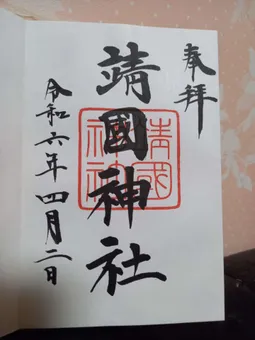 奉拝
靖國神社
令和六年四月二日
靖國
神社